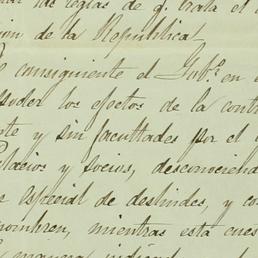 de reglas de q. trata el
de la Republica.
consiguiente el Gub.º en
poder los efectos de la cont
y sin facultades por el
Palacios y socios, desconociend
especial de deslindes, y co
nombren, mientras esta cues